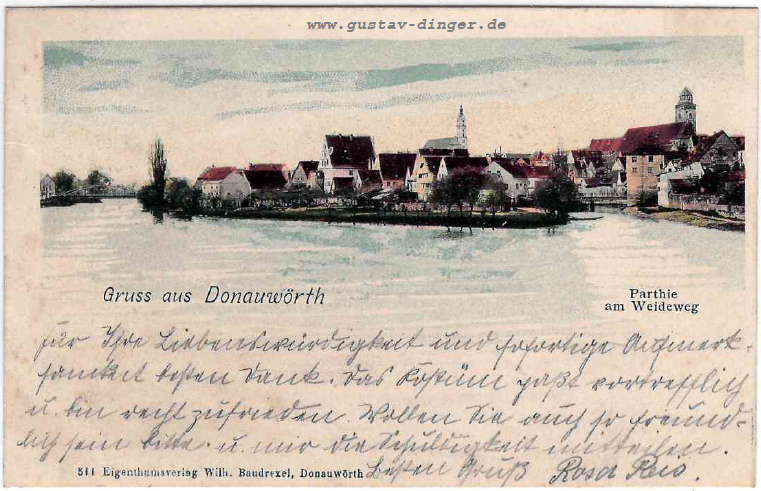 www.gustav-dinger.de
Gruss aus Donauwörth
Parthie
am Weideweg
für Ihre Liebenswürdigkeit und sofortige Aufmerk-
samkeit besten Dank. Das Kostüm paßt vortrefflich
u. bin recht zufrieden. Wollen Sie auch so freund-
lich sein bitte u. mir die Schuldigkeit mitteilen.
511 Eigenthumsverlag Wilh. Baudrexel, Donauwörth
Besten Gruß Rosa